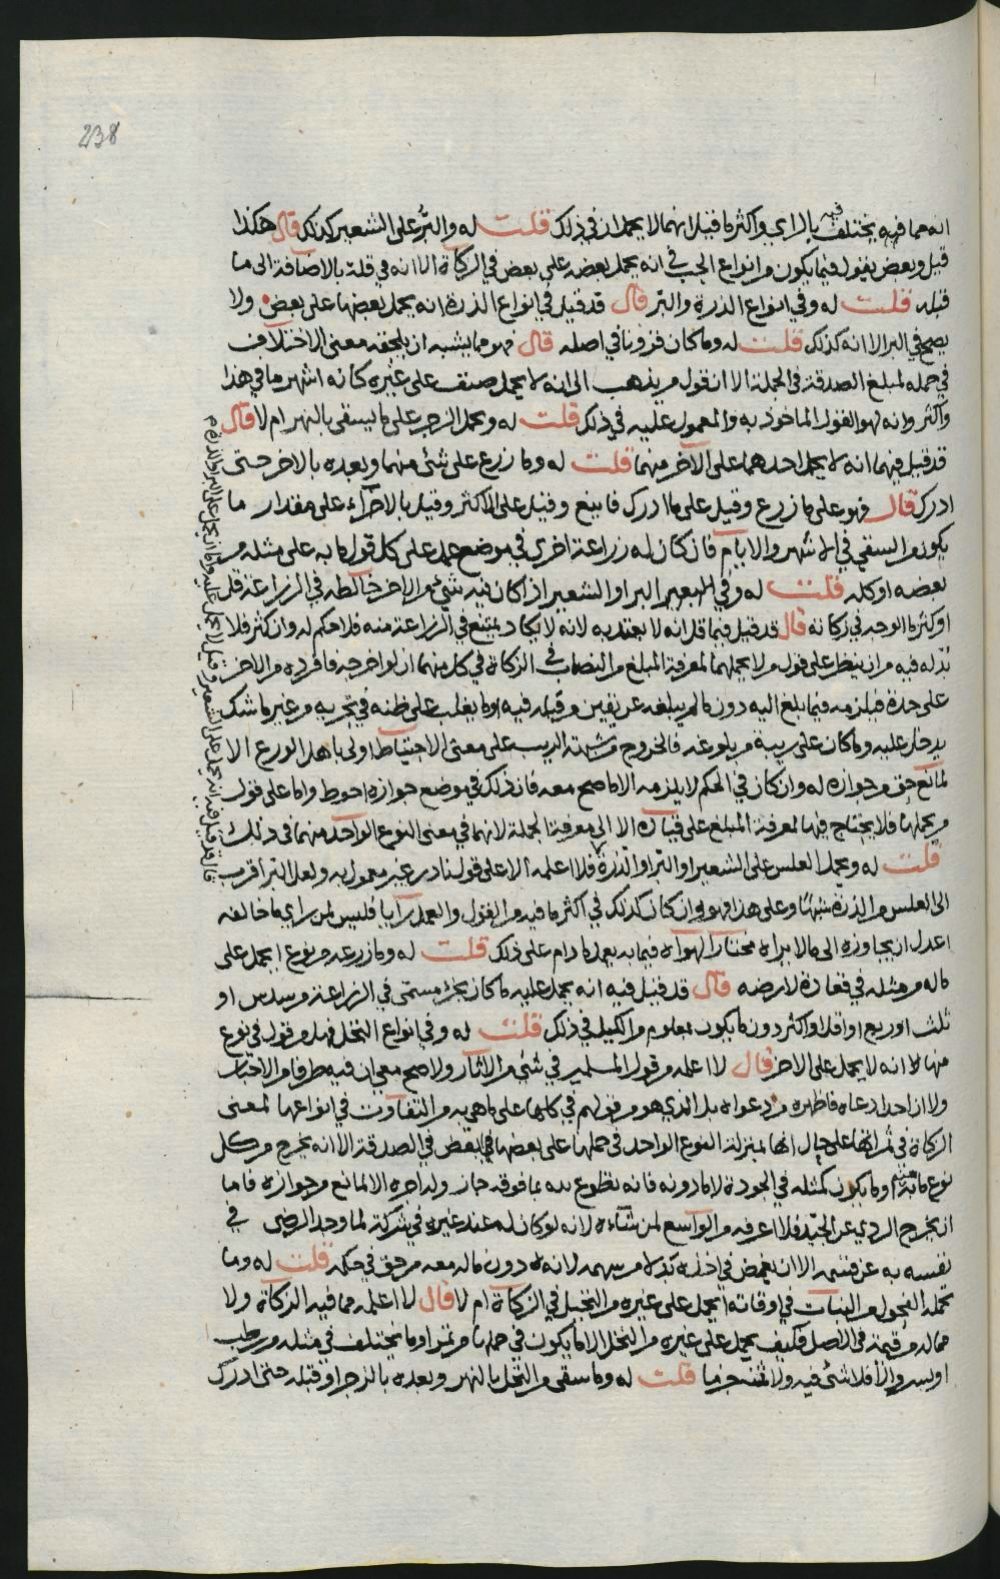 238
انه مما فيه يختلف فيه بالراي واكثر ما قيل انهما لا يحملان في ذلك قلت له والبُر على الشعير كذلك قال هكذا
قيل وبعض يقول فيما يكون من انواع الحب في انه يحمل بعضه على بعض في الزكاة الا انه في قلة بالاضافة الى ما
قبله قلت له وفي انواع الذرة والبر قال قد قيل في انواع الذرة انه يحمل بعضها على بعض ولا
يصح في البر الا انه كذلك قلت له وما كان فزونا في اصله قال فهو مما يشبه ان يلحقه معنى الاختلاف
في حمله لمبلغ الصدقة في الجملة الا ان قول من يذهب الى انه لا يحمل صنف على غيره كانه اشهر ما في هذا
واكثر وانه لهو القول الماخوذ به والمعمول عليه في ذلك قلت له ويحمل الزجر على ما يسقى بالنهر ام لا قال
قد قيل فيهما انه لا يحمل احدهما على الآخر منهما قلت له وما زرع على شئ منهما وبعده بالاخر حتى
ادرك قال فهو على ما زرع وقيل على ما ادرك فاينع وقيل على الاكثر وقيل بالاجزاء على مقدار ما
يكون من السقي في الاشهر والايام فان كان له زراعة اخرى في موضع حمل على كل قول ما به على مثله من
بعضه او كله قلت له وفي البر او الشعير اذا كان فيه شئ من الاخر خالطه في الزراعة قل
او كثر ما الوجه في زكاته قال قد قيل فيما قل انه لا يعتد به لانه لا يكاد يمتنع في الزراعة منه فلا حكم له وان كثر فلا
بد له فيه من ان ينظر على قول من لا يحملهما لمعرفة المبلغ من النصاب في الزكاة في كل منهما ان لو اخرجه فافرده من الاخر
على حدة فيلزمه فيما بلغ اليه دون ما لم يبلغه عن يقين من قبله فيه او ما يغلب على ظنه في تحريه من غير ما شك
يدخل عليه وما كان على ريبة من بلوغه فالخروج من شبهة الريب على معنى الاحتياط اولى باهل الورع الا
لمانع حق من جوازه له وان كان في الحكم لا يلزمه الا ما صح معه فان ذلك في موضع جوازه احوط واما على قول
من يحملهما فلا يحتاج فيها لمعرفة المبلغ على قياده الا الى معرفة الجملة لانهما في معنى النوع الواحد منهما في ذلك
قلت له ويحمل العلس على الشعير او البر او الذرة فلا اعلمه الا على قول نادر غير معمول به ولعل البر اقرب
الى العلس من الذرة شبها وعلى هذا فهو وان كان كذلك في اكثر ما فيه من القول والعمل رايا فليس لمن راى ما خالفه
اعدل ان يجاوزه الى ما لا يراه مختارا لهواه فيما به يعمل ما دام على ذلك قلت له وما زرعه من نوع ايحمل على
ماله من مثله في قعادة لارضه قال قد قيل فيه انه يحمل عليه ما كان بجزء مسمى في الزراعة من سدس او
ثلث او ربع او اقل او اكثر دون ما يكون بمعلوم من الكيل في ذلك قلت له وفي انواع النخل فهل من قول في نوع
منها انه لا يحمل على الاخر قال لا اعلمه من قول المسلمين في شئ من الاثار ولا صح معي ان فيه طرفا من الاخبار
ولا ان احدا ادعاه فاظهره من دعواه بل الذي هو من قولهم في كلها على ما هي به من التفاوت في انواعها لمعنى
الزكاة في ثمراتها على حال انها بمنزلة النوع الواحد في حملها على بعضها بعض في الصدقة الا انه يخرج من كل
نوع ما به منه او ما يكون كمثله في الجودة لا ما دونه فانه تطوع بدله بما فوقه جاز وله اجره الا لمانع من جوازه فاما
ان يخرج الردي عن الجيد فلا اعرفه من الواسع لمن شاءه لانه لو كان له عند غيره في شركة لما وجد الرضى في
نفسه به عن قسمه الا ان يغمض في اخذه بدلا من سهمه لانه دون ماله معه من حق في حكمه قلت له وما
تحمله الفحول من النبات في اوقاته ايحمل على غيره من النخيل في الزكاة ام لا قال لا اعلمه مما فيه الزكاة ولا
مما له من قيمة في الاصل فكيف يحمل على غيره من النخل الا ما يكون في حملها من تمر او ما يختلف في مثله من رطب
او بسر والا فلا شئ فيه ولا ثمن جزما قلت له وما سقي من النخل بالنهر وبعده بالزجر او قبله حتى ادرك